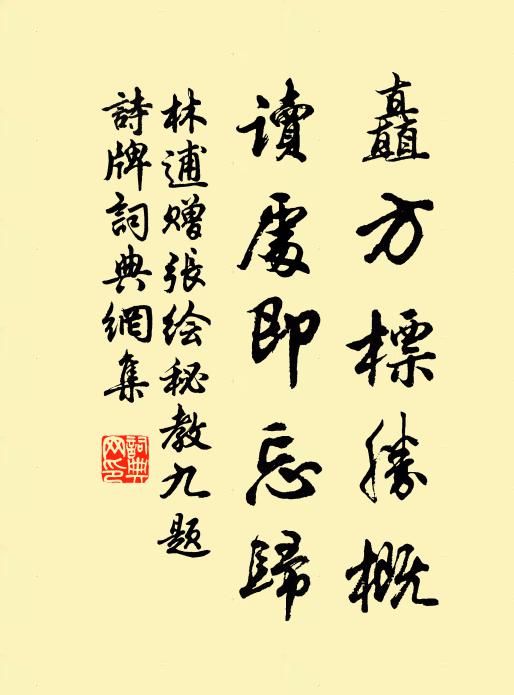 矗方標勝概
讀處即忘歸
林逋赠張绘秘教九题
詩牌詞典網集
詞典
网印